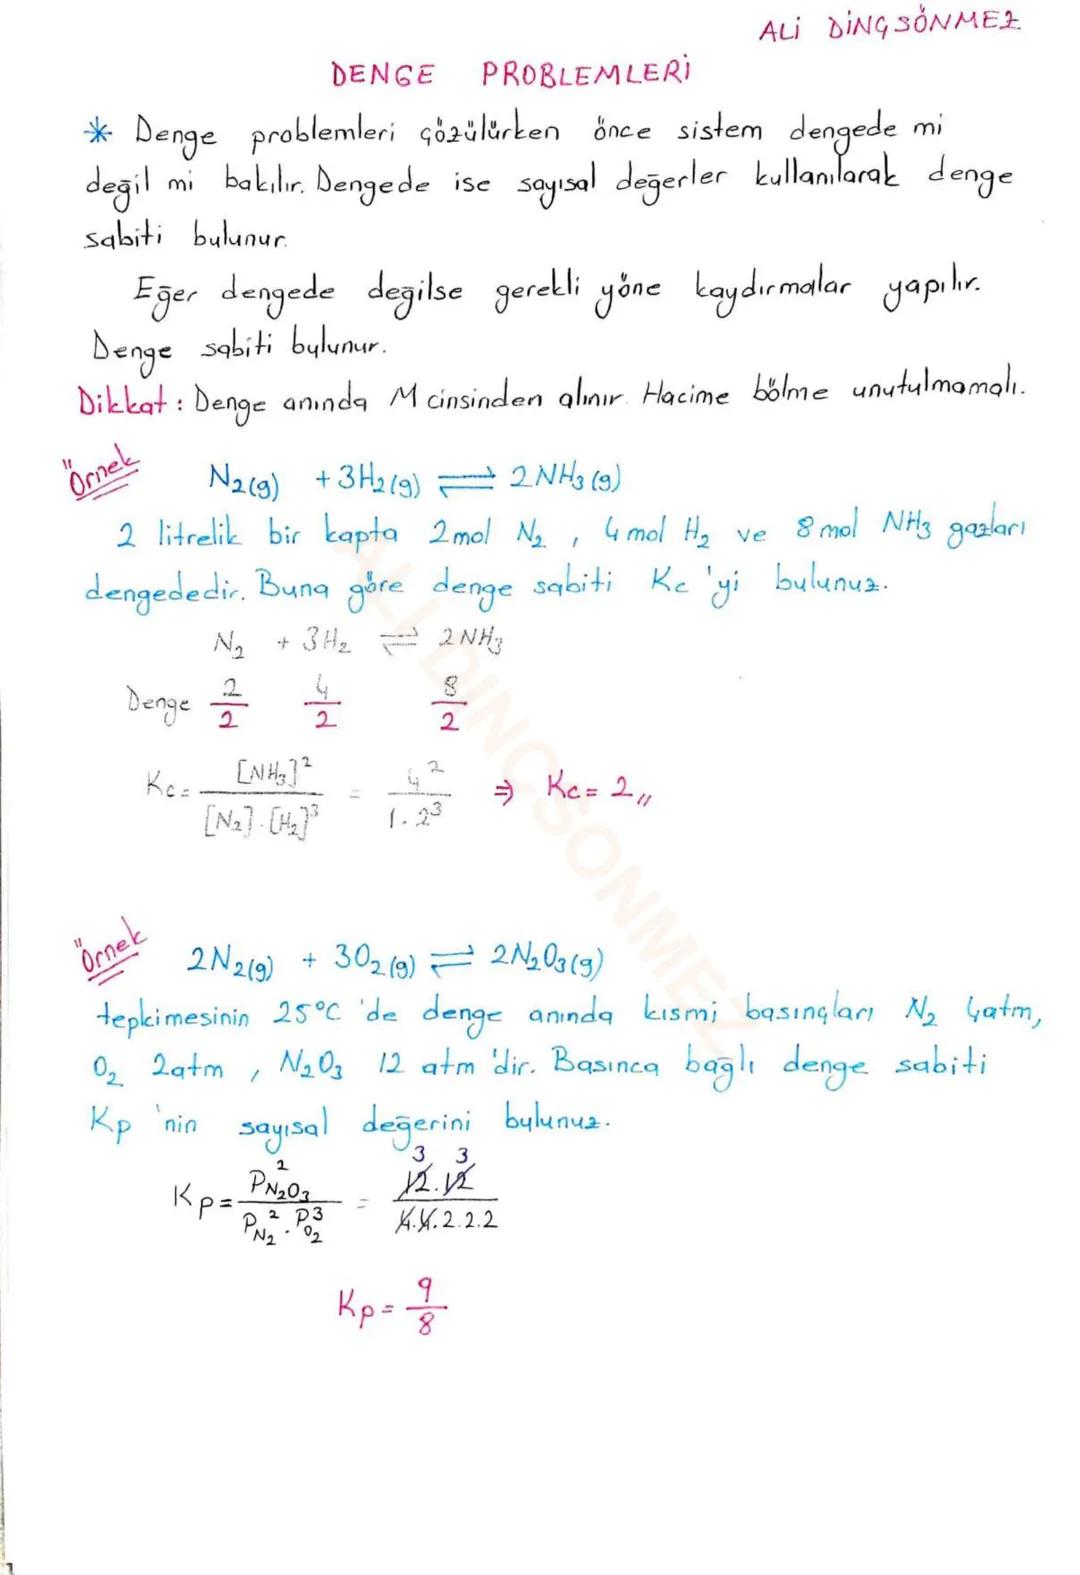 ALİ DİNÇSÖNMEZ
DENGE PROBLEMLERİ
* Denge problemleri çözülürken önce sistem dengede mi
değil mi bakılır. Dengede ise sayısal değerler kullanılarak denge
sabiti bulunur.
Eğer dengede değilse gerekli yöne kaydırmalar yapılır.
Denge sabiti bulunur.
Dikkat : Denge anında M cinsinden alınır. Hacime bölme unutulmamalı.
Örnek
N₂(g) + 3H₂(g) ⇌ 2NH₃(g)
2 litrelik bir kapta 2mol N₂ , 4 mol H₂ ve 8 mol NH₃ gazları
dengededir. Buna göre denge sabiti Kc 'yi bulunuz.
N₂ + 3H₂ ⇌ 2NH₃
Denge 2/2 4/2 8/2
Kc = [NH₃]² / [N₂].[H₂]³ = 4² / 1.2³ ⇒ Kc = 2,,
Örnek
2N₂(g) + 3O₂(g) ⇌ 2N₂O₃(g)
tepkimesinin 25°C 'de denge anında kısmi basınçları N₂ 4atm,
O₂ 2atm , N₂O₃ 12 atm 'dir. Basınca bağlı denge sabiti
Kp 'nin sayısal değerini bulunuz.
3 3
Kp = P²N₂O₃ / P²N₂ . P³O₂ = 12.12 / 4.4.2.2.2
Kp = 9/8
ALİ DİNÇSÖNMEZ
1